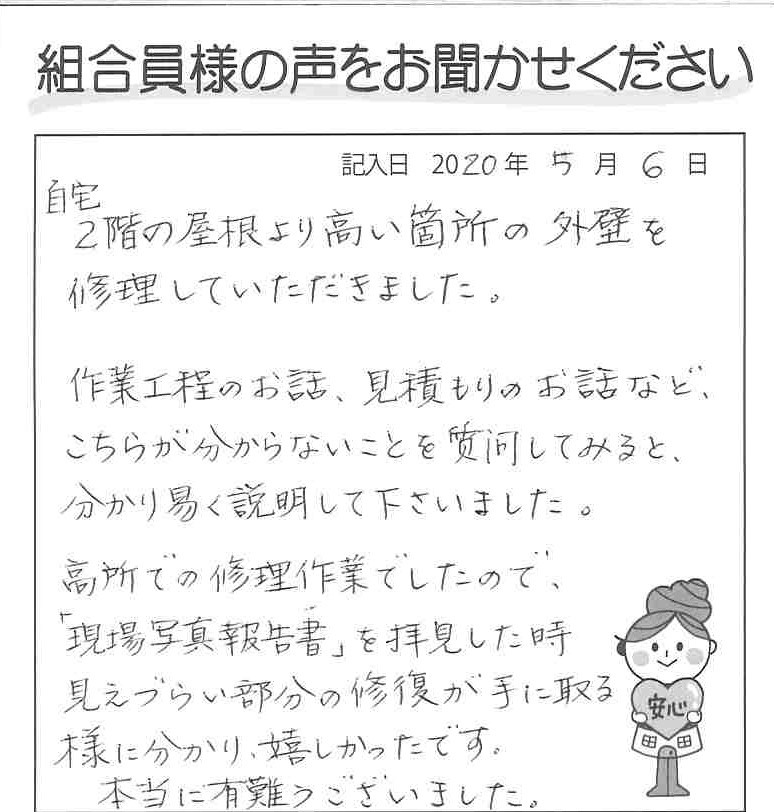 組合員様の声をお聞かせください
記入日 2020年 5月 6日
自宅
2階の屋根より高い箇所の外壁を
修理していただきました。
作業工程のお話、見積もりのお話など、
こちらが分からないことを質問してみると、
分かり易く説明して下さいました。
高所での修理作業でしたので、
「現場写真報告書」を拝見した時
見えづらい部分の修復が手に取る
様に分かり、嬉しかったです。
本当に有難うございました。
安心